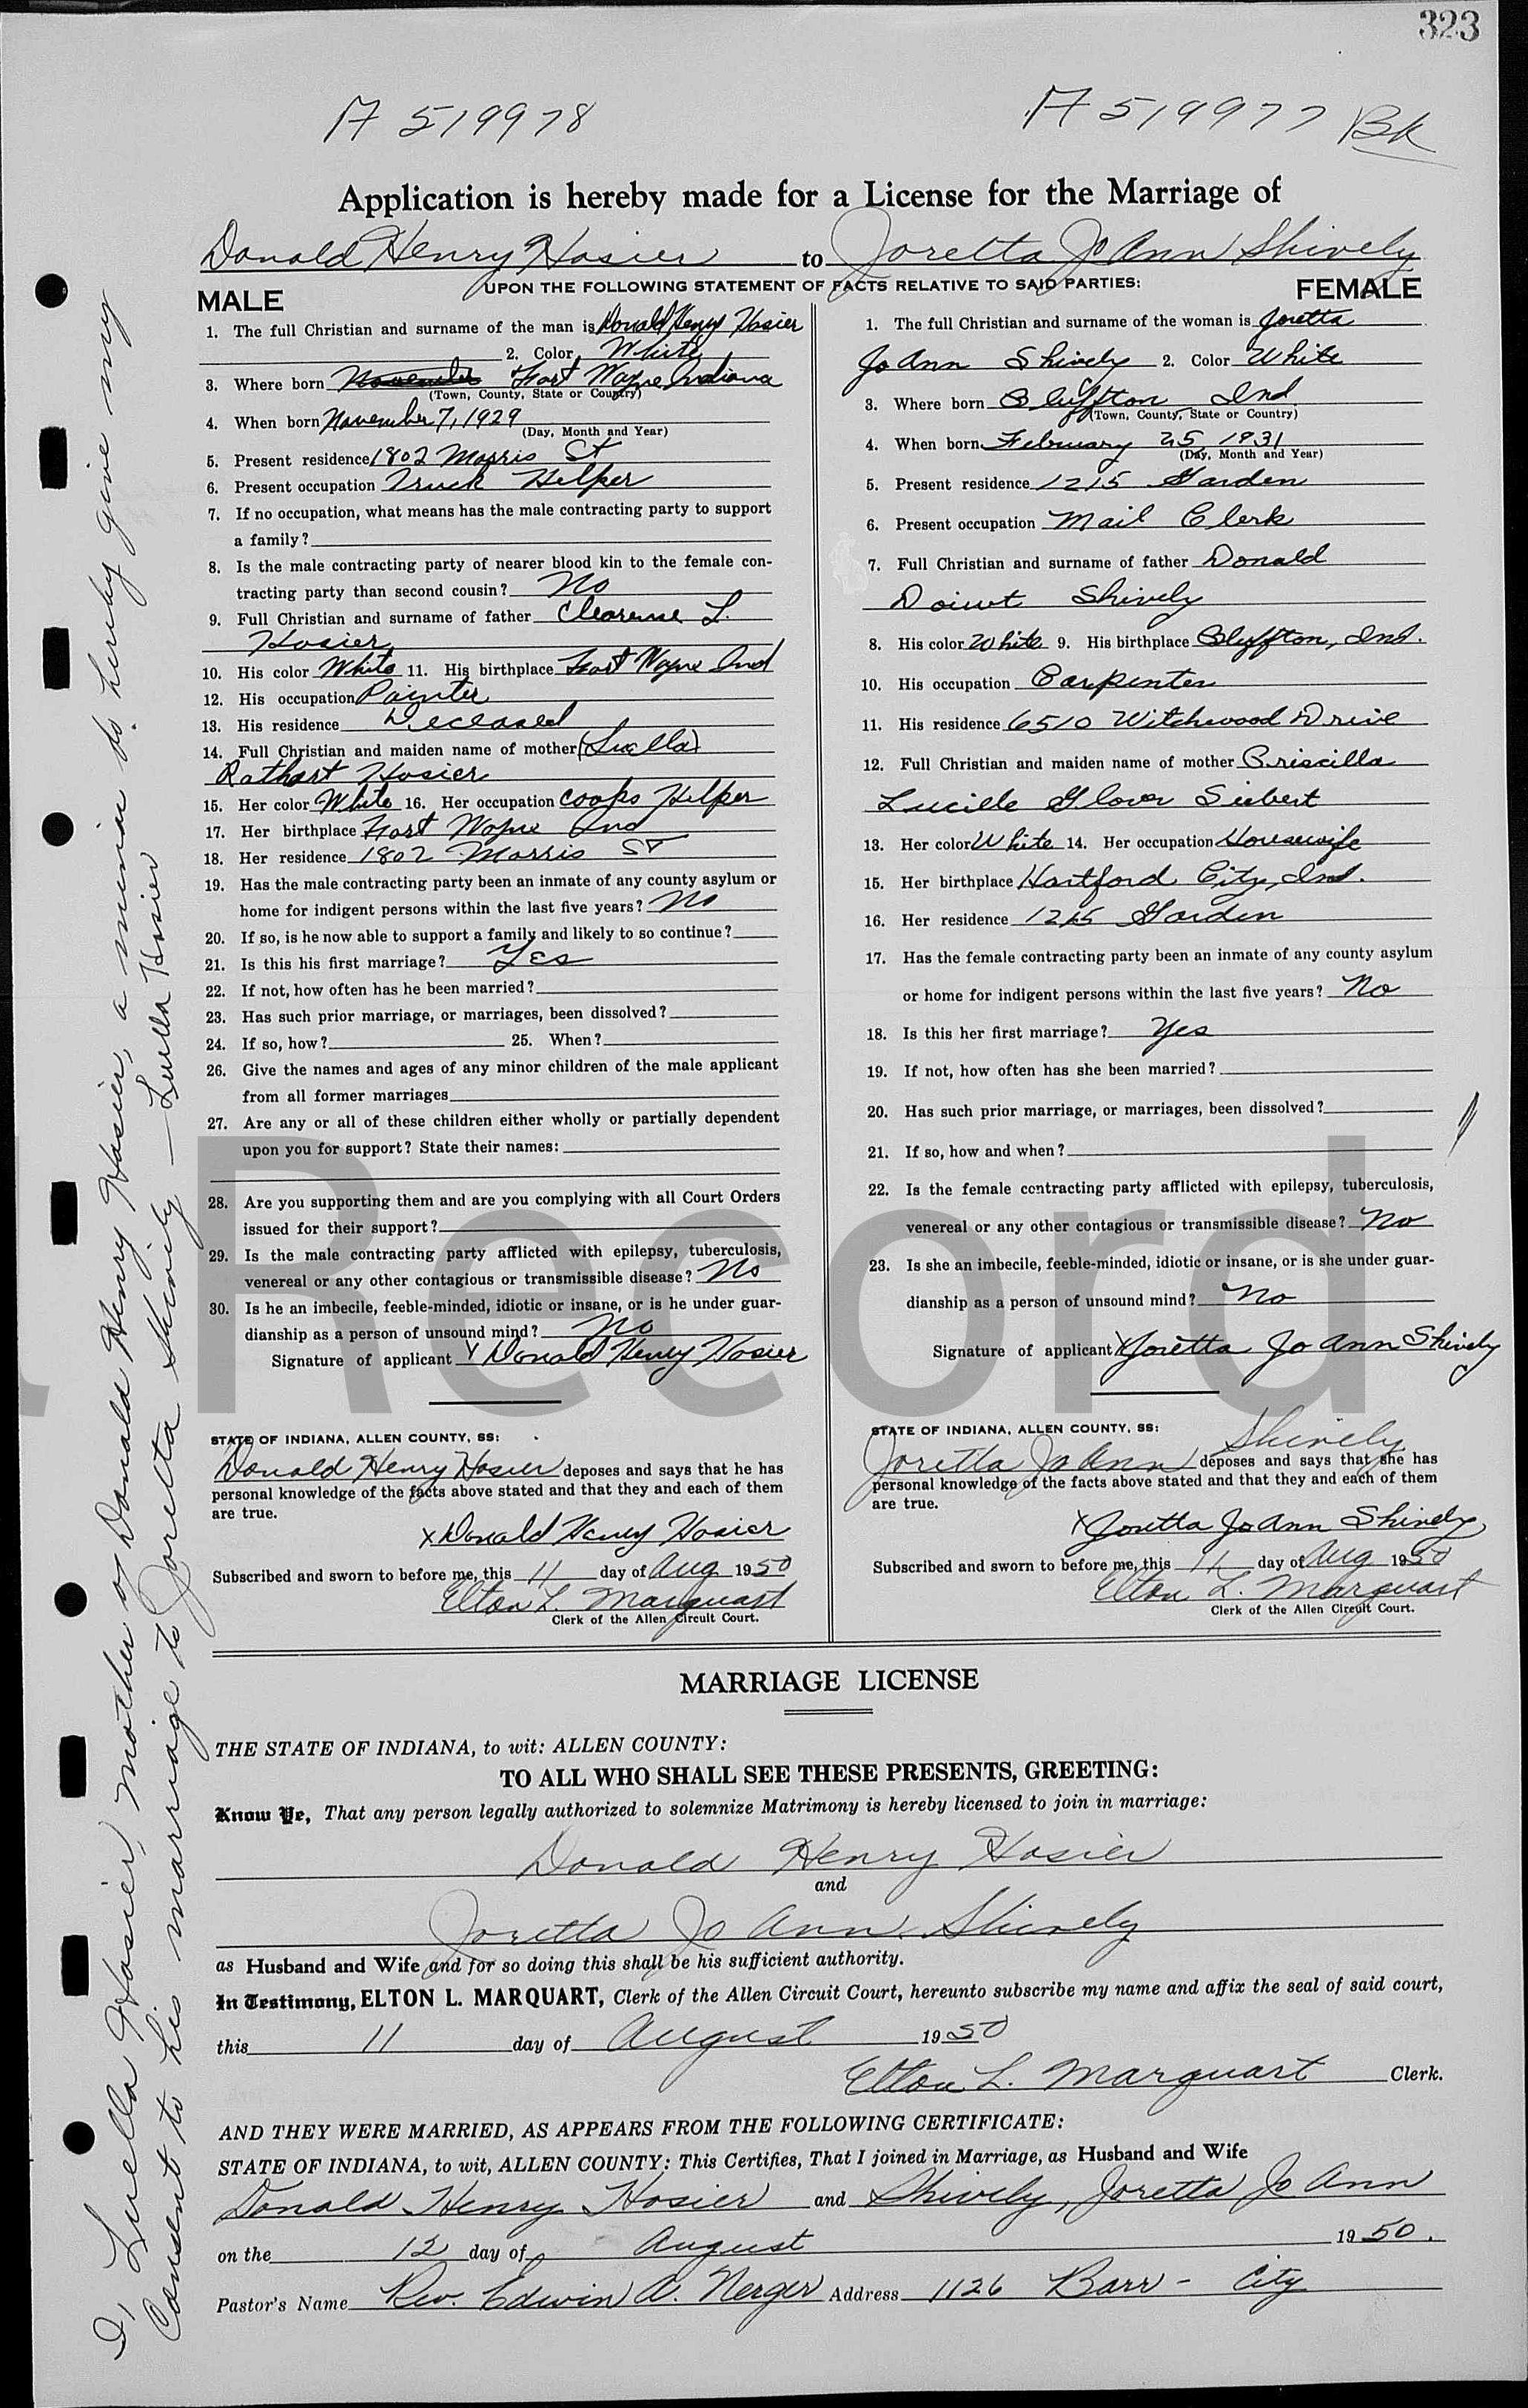 323
A 519978
A 519977 BK
Application is hereby made for a License for the Marriage of
Donald Henry Hosier to Joretta Jo Ann Shively
UPON THE FOLLOWING STATEMENT OF FACTS RELATIVE TO SAID PARTIES:
MALE
1. The full Christian and surname of the man is Donald Henry Hosier
2. Color White
3. Where born November Fort Wayne Indiana
(Town, County, State or Country)
4. When born November 7, 1929
(Day, Month and Year)
5. Present residence 1802 Morris St
6. Present occupation Truck Helper
7. If no occupation, what means has the male contracting party to support
a family?
8. Is the male contracting party of nearer blood kin to the female con-
tracting party than second cousin? No
9. Full Christian and surname of father Clarence L.
Hosier
10. His color White 11. His birthplace Fort Wayne Ind
12. His occupation Painter
13. His residence Deceased
14. Full Christian and maiden name of mother (Luella)
Rathert Hosier
15. Her color White 16. Her occupation Cooks Helper
17. Her birthplace Fort Wayne Ind
18. Her residence 1802 Morris ST
19. Has the male contracting party been an inmate of any county asylum or
home for indigent persons within the last five years? No
20. If so, is he now able to support a family and likely to so continue?
21. Is this his first marriage? Yes
22. If not, how often has he been married?
23. Has such prior marriage, or marriages, been dissolved?
24. If so, how? 25. When?
26. Give the names and ages of any minor children of the male applicant
from all former marriages
27. Are any or all of these children either wholly or partially dependent
upon you for support? State their names:
28. Are you supporting them and are you complying with all Court Orders
issued for their support?
29. Is the male contracting party afflicted with epilepsy, tuberculosis,
venereal or any other contagious or transmissible disease? No
30. Is he an imbecile, feeble-minded, idiotic or insane, or is he under guar-
dianship as a person of unsound mind? No
Signature of applicant X Donald Henry Hosier
STATE OF INDIANA, ALLEN COUNTY, SS:
Donald Henry Hosier deposes and says that he has
personal knowledge of the facts above stated and that they and each of them
are true.
X Donald Henry Hosier
Subscribed and sworn to before me, this 11 day of Aug 1950
Elton L. Marquart
Clerk of the Allen Circuit Court.
FEMALE
1. The full Christian and surname of the woman is Joretta
Jo Ann Shively 2. Color White
3. Where born Bluffton Ind
(Town, County, State or Country)
4. When born February 25 1931
(Day, Month and Year)
5. Present residence 1215 Garden
6. Present occupation Mail Clerk
7. Full Christian and surname of father Donald
Shively
8. His color White 9. His birthplace Bluffton, Ind.
10. His occupation Carpenter
11. His residence 6510 Witchwood Drive
12. Full Christian and maiden name of mother Priscilla
Lucille Glover Siebert
13. Her color White 14. Her occupation Housewife
15. Her birthplace Hartford City, Ind.
16. Her residence 1215 Garden
17. Has the female contracting party been an inmate of any county asylum
or home for indigent persons within the last five years? No
18. Is this her first marriage? Yes
19. If not, how often has she been married?
20. Has such prior marriage, or marriages, been dissolved?
21. If so, how and when?
22. Is the female contracting party afflicted with epilepsy, tuberculosis,
venereal or any other contagious or transmissible disease? No
23. Is she an imbecile, feeble-minded, idiotic or insane, or is she under guar-
dianship as a person of unsound mind? No
Signature of applicant X Joretta Jo Ann Shively
STATE OF INDIANA, ALLEN COUNTY, SS:
Joretta Jo Ann Shively deposes and says that she has
personal knowledge of the facts above stated and that they and each of them
are true.
X Joretta Jo Ann Shively
Subscribed and sworn to before me, this 11 day of Aug 1950
Elton L. Marquart
Clerk of the Allen Circuit Court.
MARRIAGE LICENSE
THE STATE OF INDIANA, to wit: ALLEN COUNTY:
TO ALL WHO SHALL SEE THESE PRESENTS, GREETING:
Know Ye, That any person legally authorized to solemnize Matrimony is hereby licensed to join in marriage:
Donald Henry Hosier
and
Joretta Jo Ann Shively
as Husband and Wife and for so doing this shall be his sufficient authority.
In Testimony, ELTON L. MARQUART, Clerk of the Allen Circuit Court, hereunto subscribe my name and affix the seal of said court,
this 11 day of August 1950
Elton L. Marquart Clerk.
AND THEY WERE MARRIED, AS APPEARS FROM THE FOLLOWING CERTIFICATE:
STATE OF INDIANA, to wit, ALLEN COUNTY: This Certifies, That I joined in Marriage, as Husband and Wife
Donald Henry Hosier and Shively, Joretta Jo Ann
on the 12 day of August 1950.
Pastor's Name Rev. Edwin A. Nerger Address 1126 Barr - City
I, Luella Hosier, mother of Donald Henry Hosier, a minor do hereby give my
consent to his marriage to Joretta Shively — Luella Hosier
Record